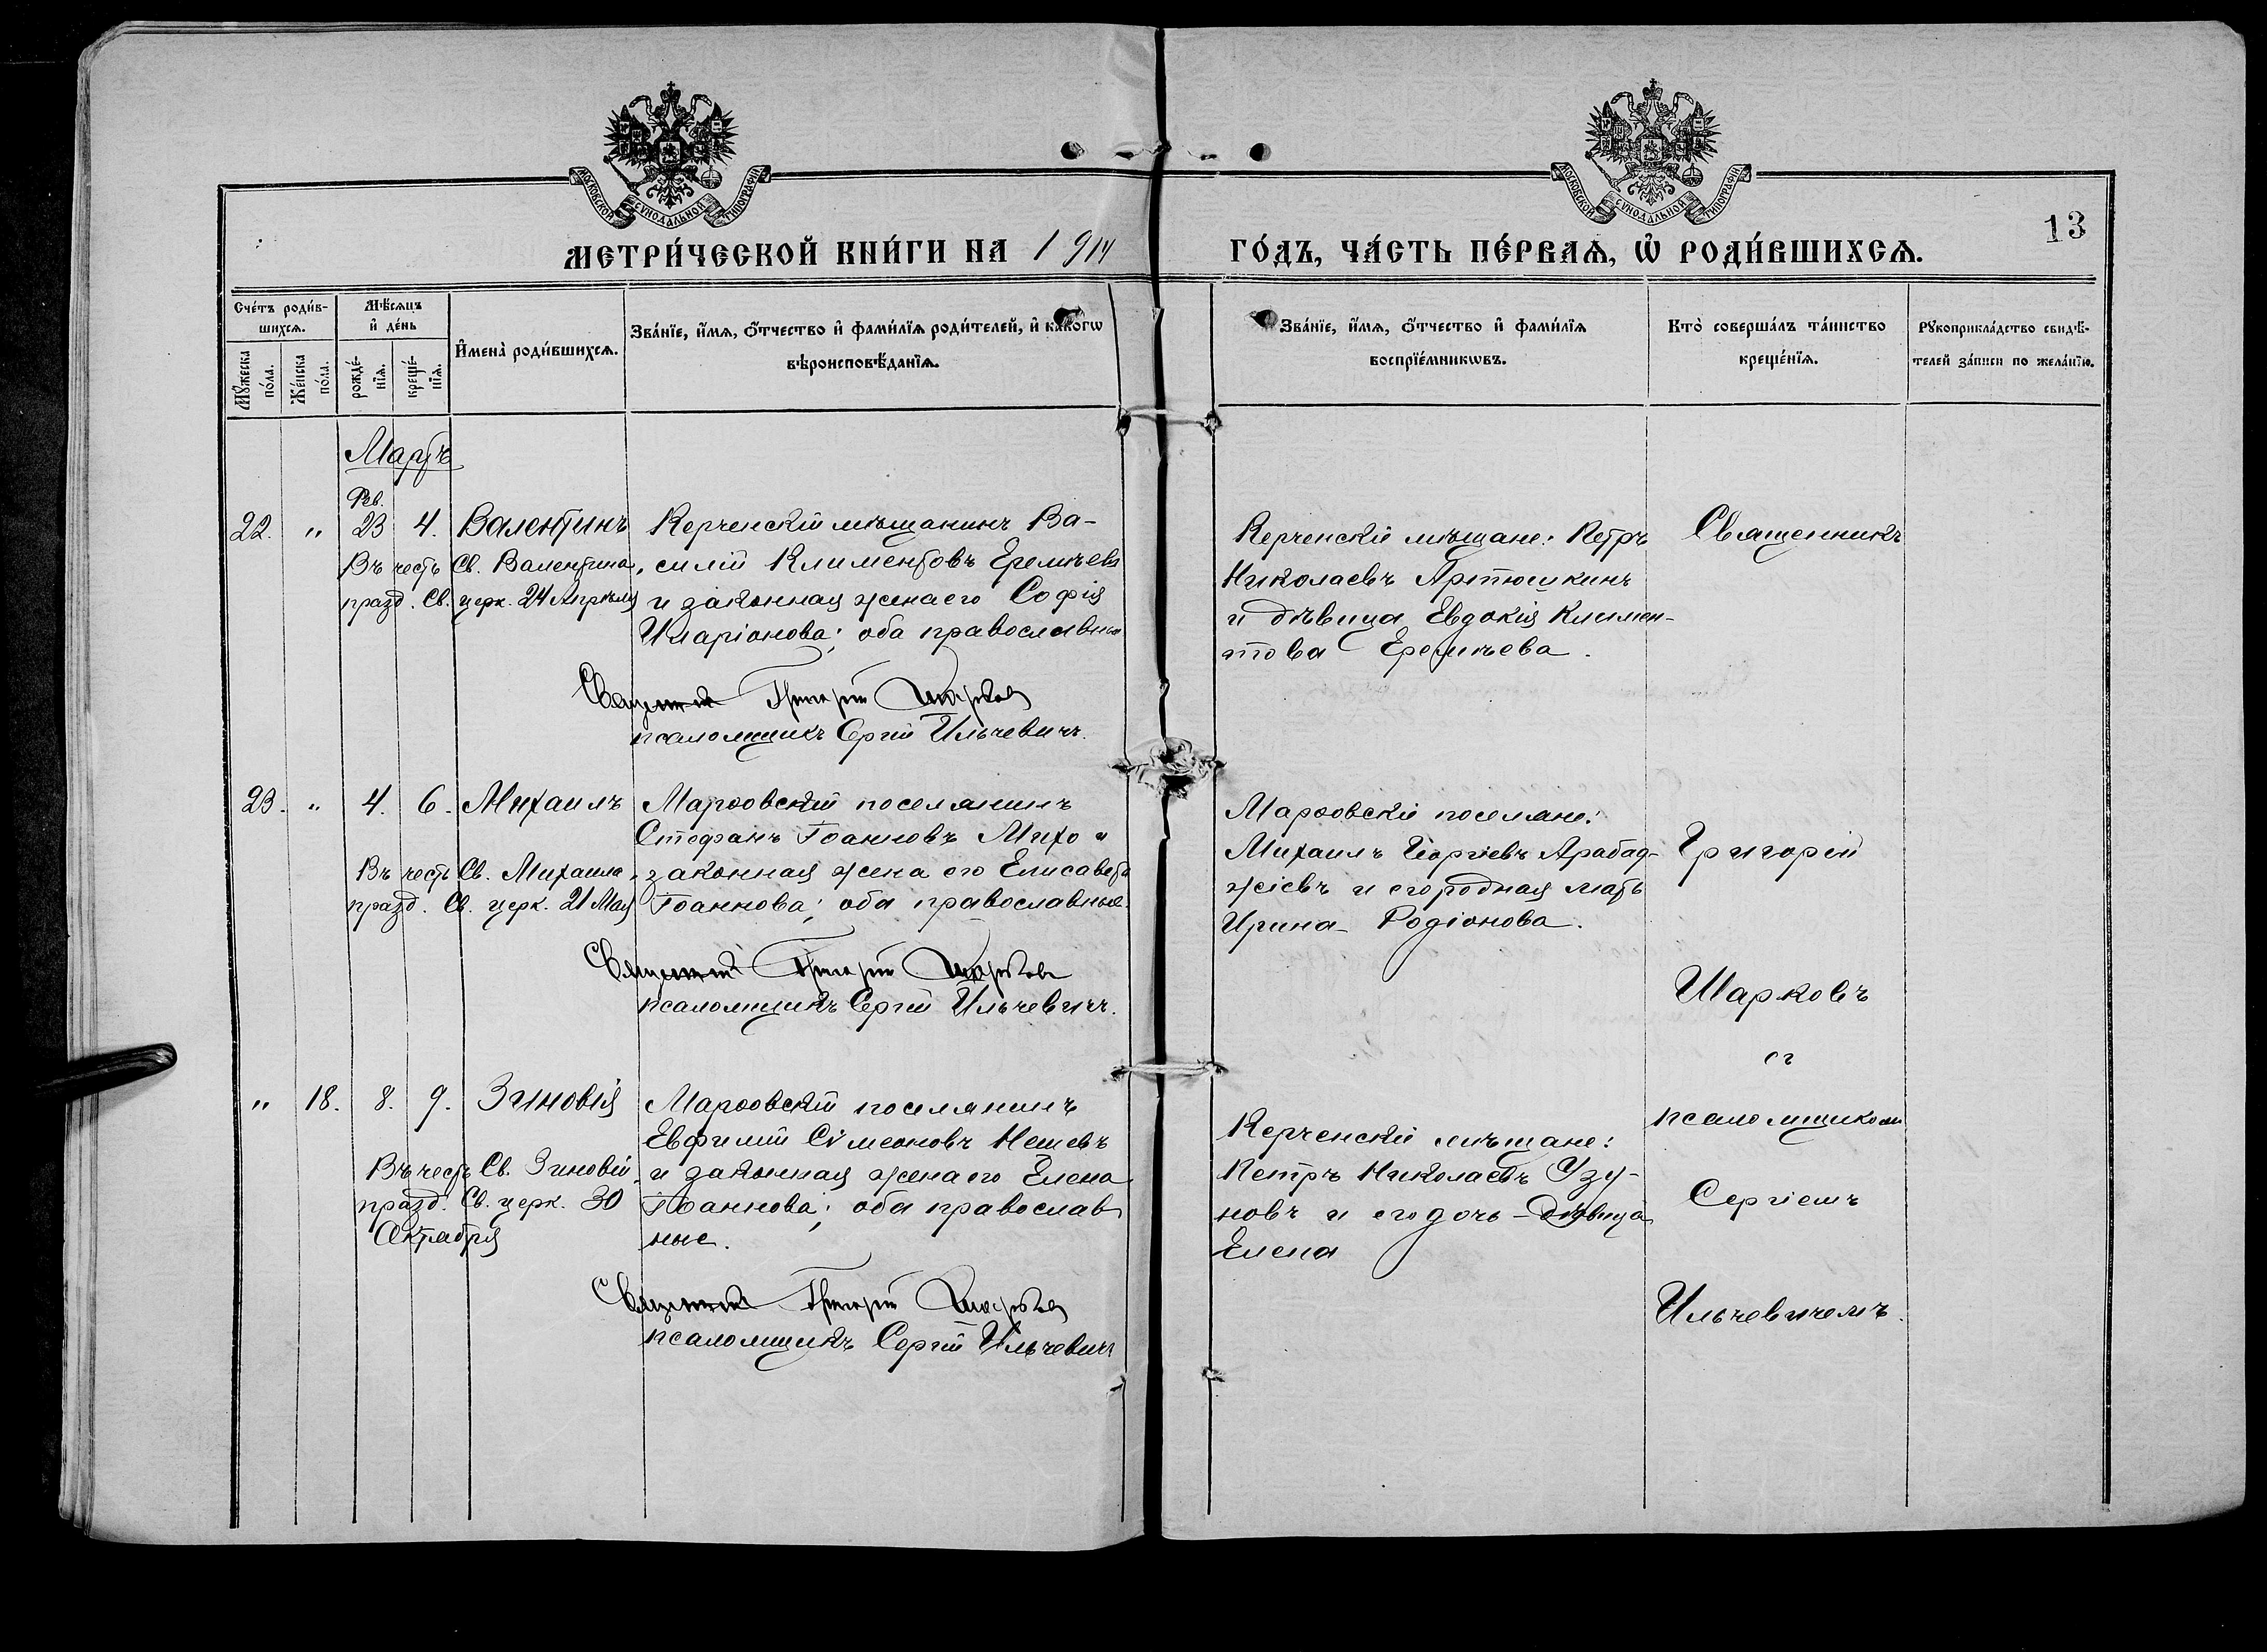 МОСКОВСКОЙ СѴНОДАЛЬНОЙ ТИПОГРАФІИ
МОСКОВСКОЙ СѴНОДАЛЬНОЙ ТИПОГРАФІИ
13
МЕТРИ́ЧЕСКОЙ КНИ́ГИ НА 1914
ГО́ДЪ, ЧА́СТЬ ПЕ́РВАѦ, Ѡ҆ РОДИ́ВШИХСѦ.
Сче́тъ роди́в-
шихсѧ.
Мꙋ́жеска по́ла.
Же́нска по́ла.
Мѣ́сяцъ
и҆ де́нь
рожде́-
нїѧ.
креще́-
нїѧ.
И҆мена̀ роди́вшихсѧ.
Зва́нїе, и҆́мѧ, ѻ҆́тчество и҆ фами́лїѧ роди́телей, и҆ како́гѡ
вѣроисповѣ́данїѧ.
Зва́нїе, и҆́мѧ, ѻ҆́тчество и҆ фами́лїѧ
воспрїе́мникѡвъ.
Кто̀ соверша́лъ та́инство
креще́нїѧ.
Рꙋкоприкла́дство свидѣ́-
телей за́писи по жела́нїю.
Мартъ
Фев.
22. " 23 4. Валентинъ
Въ честь Св. Валентина,
празд. Св. церк. 24 Апрѣля
Керченскій мѣщанинъ Ва-
силій Климентовъ Еремѣевъ
и законная жена его Софія
Иларіонова; оба православные
Священникъ Григорій Шарковъ
псаломщикъ Сергій Ильчевичъ.
Керченскіе мѣщане: Петръ
Николаевъ Артюшкинъ
и дѣвица Евдокія Климен-
това Еремѣева.
Священникъ
23. " 4. 6. Михаилъ
Въ честь Св. Михаила,
празд. Св. церк. 21 Мая
Марфовскій поселянинъ
Стефанъ Іоанновъ Михо и
законная жена его Елисавета
Іоаннова; оба православные.
Священникъ Григорій Шарковъ
псаломщикъ Сергій Ильчевичъ.
Марфовскіе поселяне:
Михаилъ Георгіевъ Арабад-
жіевъ и его родная мать
Ирина Родіонова.
Григорій
Шарковъ
съ
" 18. 8. 9. Зиновія
Въ честь Св. Зиновіи,
празд. Св. церк. 30
Октября
Марфовскій поселянинъ
Евфимій Сѵмеоновъ Нешевъ
и законная жена его Елена
Іоаннова; оба православ
ные.
Священникъ Григорій Шарковъ
псаломщикъ Сергій Ильчевичъ
Керченскіе мѣщане:
Петръ Николаевъ Узу-
новъ и его дочь - дѣвица
Елена
псаломщикомъ
Сергіемъ
Ильчевичемъ.